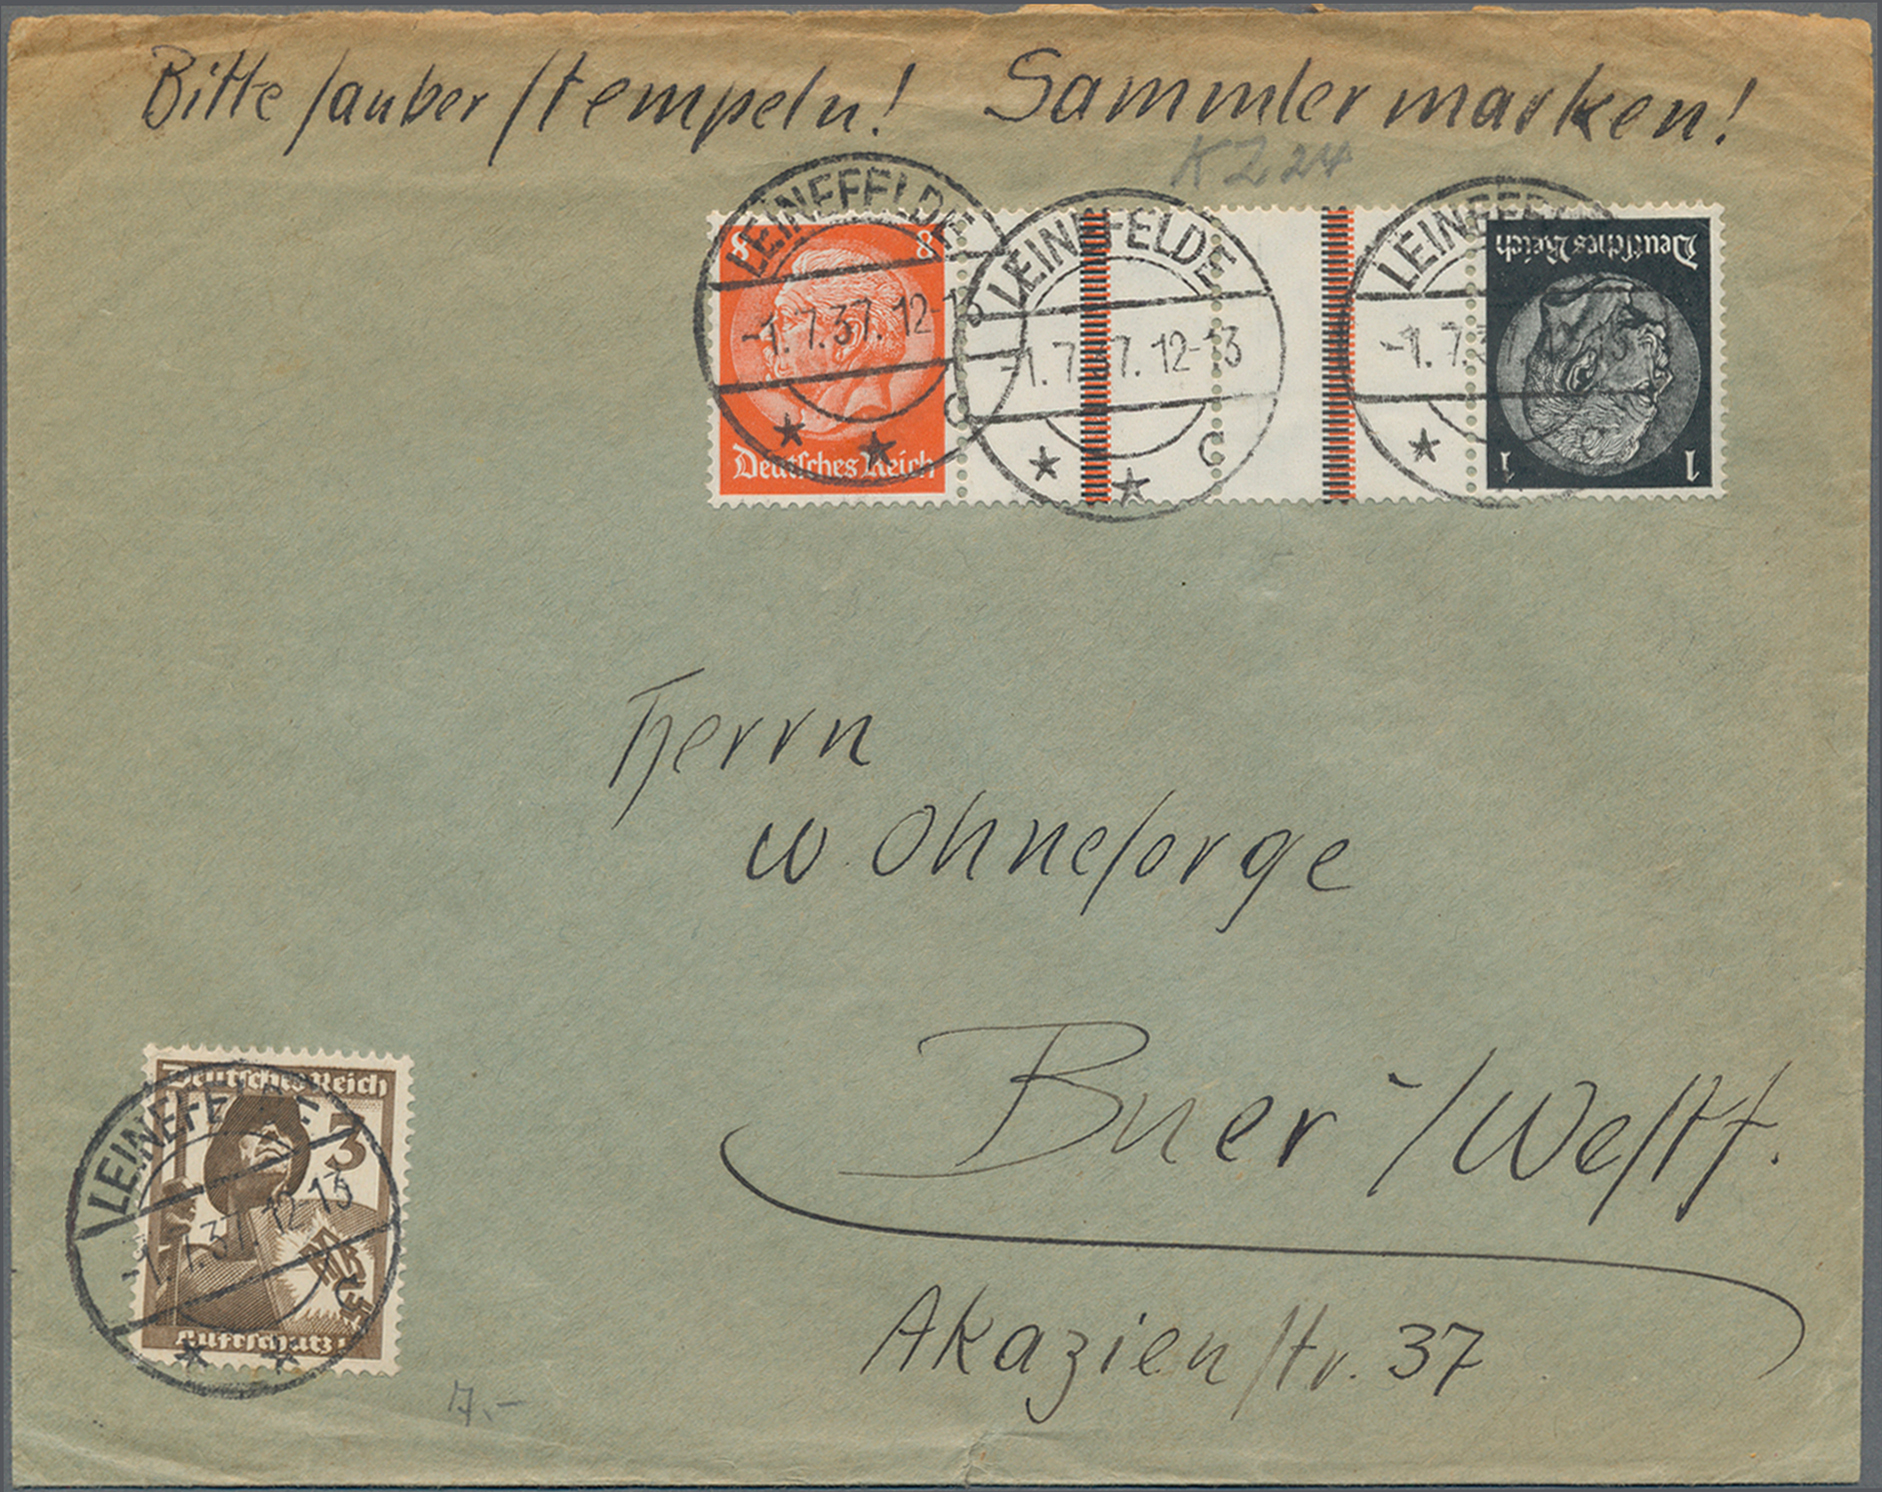 Bitte sauber stempeln! Sammlermarken!
KZ 24
LEINEFELDE
-1.7.37.12-13
C
8 8
Deutsches Reich
LEINEFELDE
-1.7 7.12-13
C
LEINEFE
-1.7.3 13
Deutsches Reich
1 1
Herrn
W. Ohnesorge
Buer-/Westf.
Akazienstr. 37
Deutsches Reich
3
Luftschutz
LEINEFELDE
-1.7.37.12-13
C
7.-